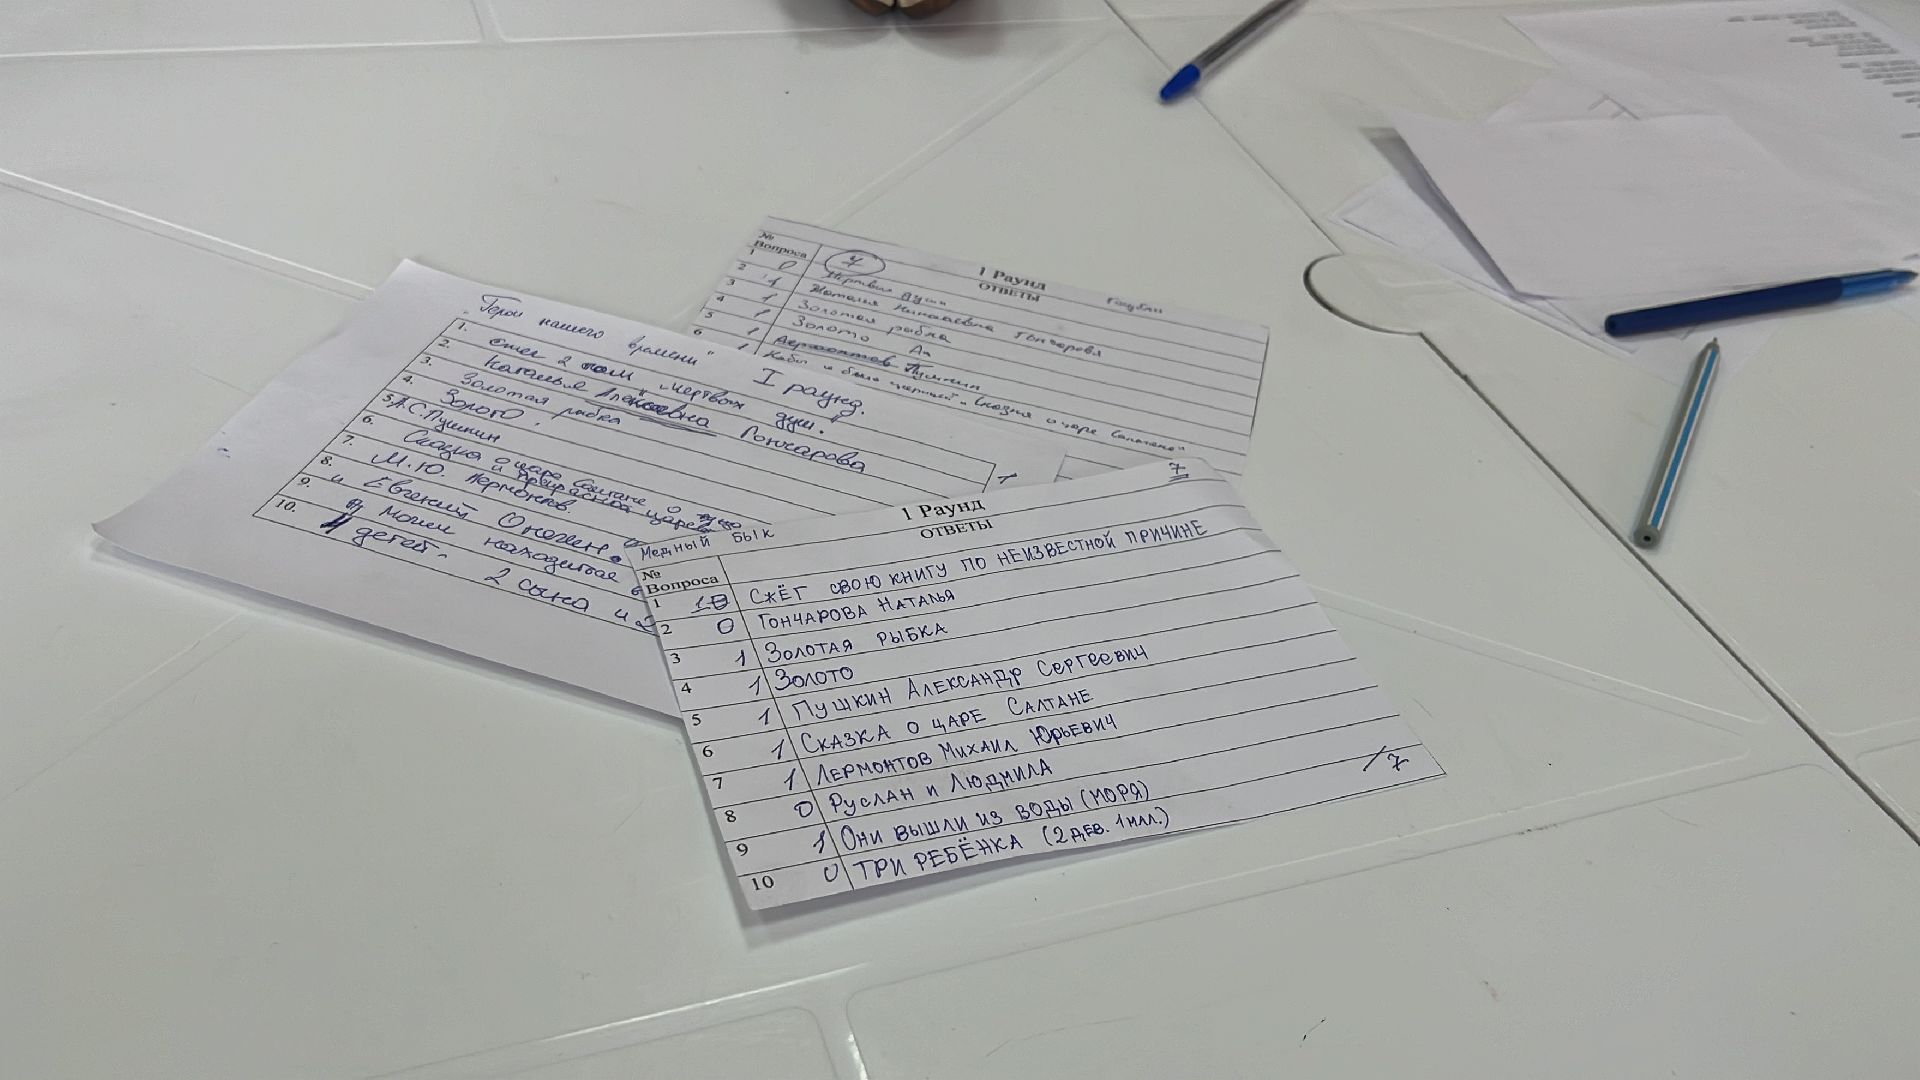 №
Вопроса
1 Раунд
ОТВЕТЫ
7
1 0 Мертвые души
2 1 Наталья Николаевна Гончарова
3 1 Золотая рыбка
4 1 Золото Да
5 1 Лермонтов Пушкин
6 1 Кабы я была царицей" "Сказка о царе Салтане"
"Герои нашего времени"
I раунд.
1. сжег 2 том "Мертвых душ."
2. Наталья Алексеевна Гончарова
3. Золотая рыбка
4. Золото.
5. А.С.Пушкин
6. Сказка о царе Салтане
7. М.Ю. Лермонтов
8. и Евгений Онегин.
9. находится
10. 4 детей. 2 сына и 2
7
Медный бык
1 Раунд
ОТВЕТЫ
№
Вопроса
1 1 Сжёг свою книгу по неизвестной причине
2 0 Гончарова Наталья
3 1 Золотая рыбка
4 1 Золото
5 1 Пушкин Александр Сергеевич
6 1 Сказка о царе Салтане
7 1 Лермонтов Михаил Юрьевич
8 0 Руслан и Людмила
9 1 Они вышли из воды (моря)
10 0 Три ребёнка (2 дев. 1 мал.)
/7